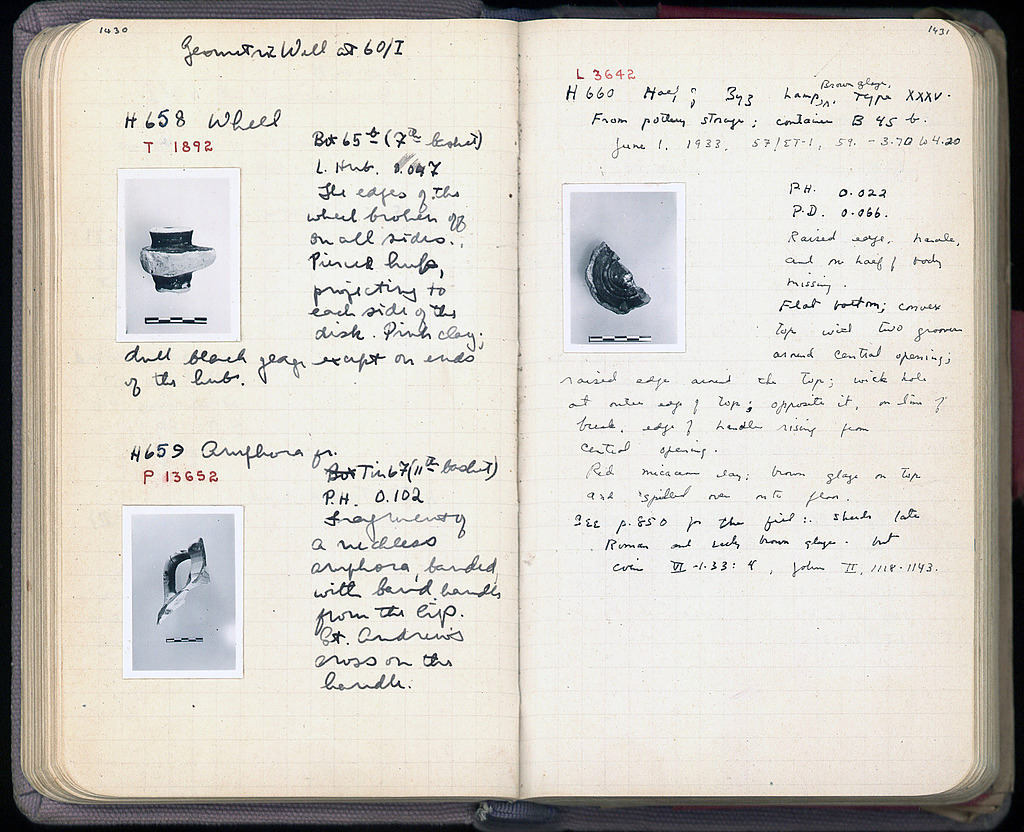 1430
Geometric Well at 60/I
H 658 Wheel
T 1892
Bot 65 b (7th basket)
L. Hub. 0.047
The edges of the
wheel broken off
on all sides.
Pierced hubs,
projecting to
each side of the
disk. Pink clay;
dull black glaze except on ends
of the hubs.
H 659 Amphora fr.
P 13652
Tin 67 (11th basket)
P.H. 0.102
Fragment of
a neckless
amphora, banded,
with band handle
from the lip.
St. Andrew's
cross on the
handle.
1431
L 3642
Brown glaze,
H 660 Half of Byz Lamp, Type XXXV.
From pottery storage; container B 45 b.
June 1, 1933, 57/ΣΤ-1, 59. -3.70 to 4.20
P.H. 0.022
P.D. 0.066.
Raised edge, handle,
and one half of body
missing.
Flat bottom; convex
top with two grooves
around central opening;
raised edge around the top; wick hole
at outer edge of top; opposite it, on line of
break, edge of handle rising from
central opening.
Red micaceous clay; brown glaze on top
and spilled over onto floor.
See p. 850 for the fill: sherds late
Roman and early brown glaze. but
coin VI -1.33: 4, John II, 1118-1143.